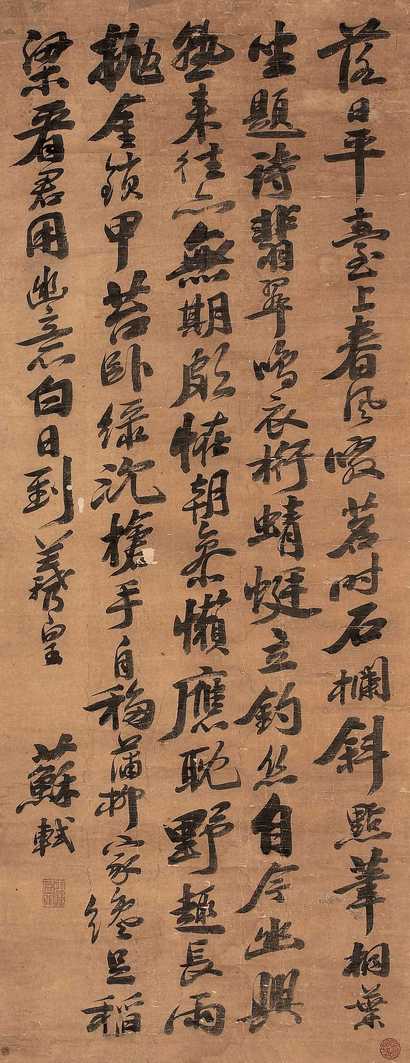 落日平臺上春風啜茗時石欄斜點筆桐葉
坐題詩翡翠鳴衣桁蜻蜓立釣絲自今幽興
熟來往亦無期頗恠朝參懶應耽野趣長雨
拋金鎖甲苔臥綠沈槍手自移蒲柳家纔足稻
粱看君用幽意白日到羲皇
蘇軾